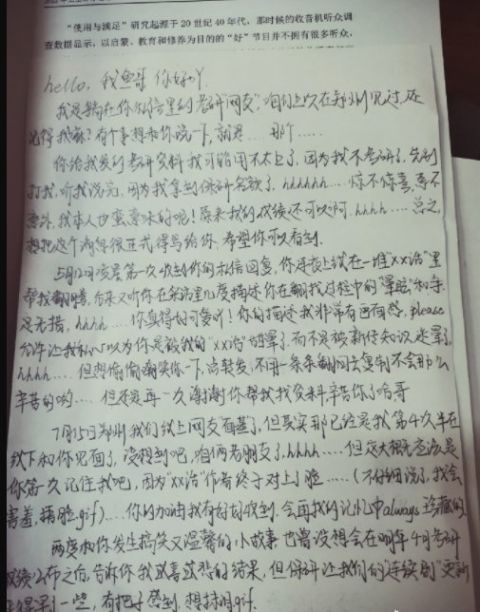 "使用与满足"研究起源于20世纪40年代,那时候的收音机听众调
查数据显示,以启蒙、教育和修养为目的的"好"节目并不拥有很多听众,
hello,我鱼哥 你好丫
我是躺在你私信里的考研"网友",咱们上次在郑州见过,还
记得我嘛?有个事想和你说一下,就是……那个……
你给我发的考研资料我可能用不太上了,因为我不考研了,先别
打我,听我说完,因为我拿到保研名额了,hhhhhh……惊不惊喜,意不
意外,我本人也蛮意外的呢!原来我的成绩还可以啊,hhhh……总之,
想把这个消息很正式得写给你,希望你可以看到.
5月12日凌晨第一次收到你的私信回复,你连夜上线在一堆"xx论"里
帮我翻,后来又听你在粉活里几度描述你在翻找过程中的"晕眩"和手
足无措,hhhh……你真得好可爱吖!你的描述我非常有画面感,please
允许让我私心以为你是被我的"xx论"绕晕了,而不是被新传知识迷晕了.
hhhh……但想偷偷嘲笑你一下,点转发,不用一条条翻回去复制不会那么
辛苦的哟……但还是再一次谢谢你帮我找资料,辛苦你了哈哥
7月15日郑州我们线上网友面基了,但其实那已经是我第4次半在
线下和你见面了,没想到吧,咱俩老朋友了,hhhh……但这大概应该是
你第一次记住我吧,因为"xx论"作者终于对上了脸……(不仔细说了,我会
害羞,捂脸.gif)……你的加油我有好好收到,会再我的记忆中always珍藏的.
两度和你发生搞笑又温馨的小故事 也曾设想会在明年4月考研
成绩公布之后,告诉你我或喜或悲的结果,但保研让我们的"连续剧"更新
得早了一些,有把子感到,想转圈.gif